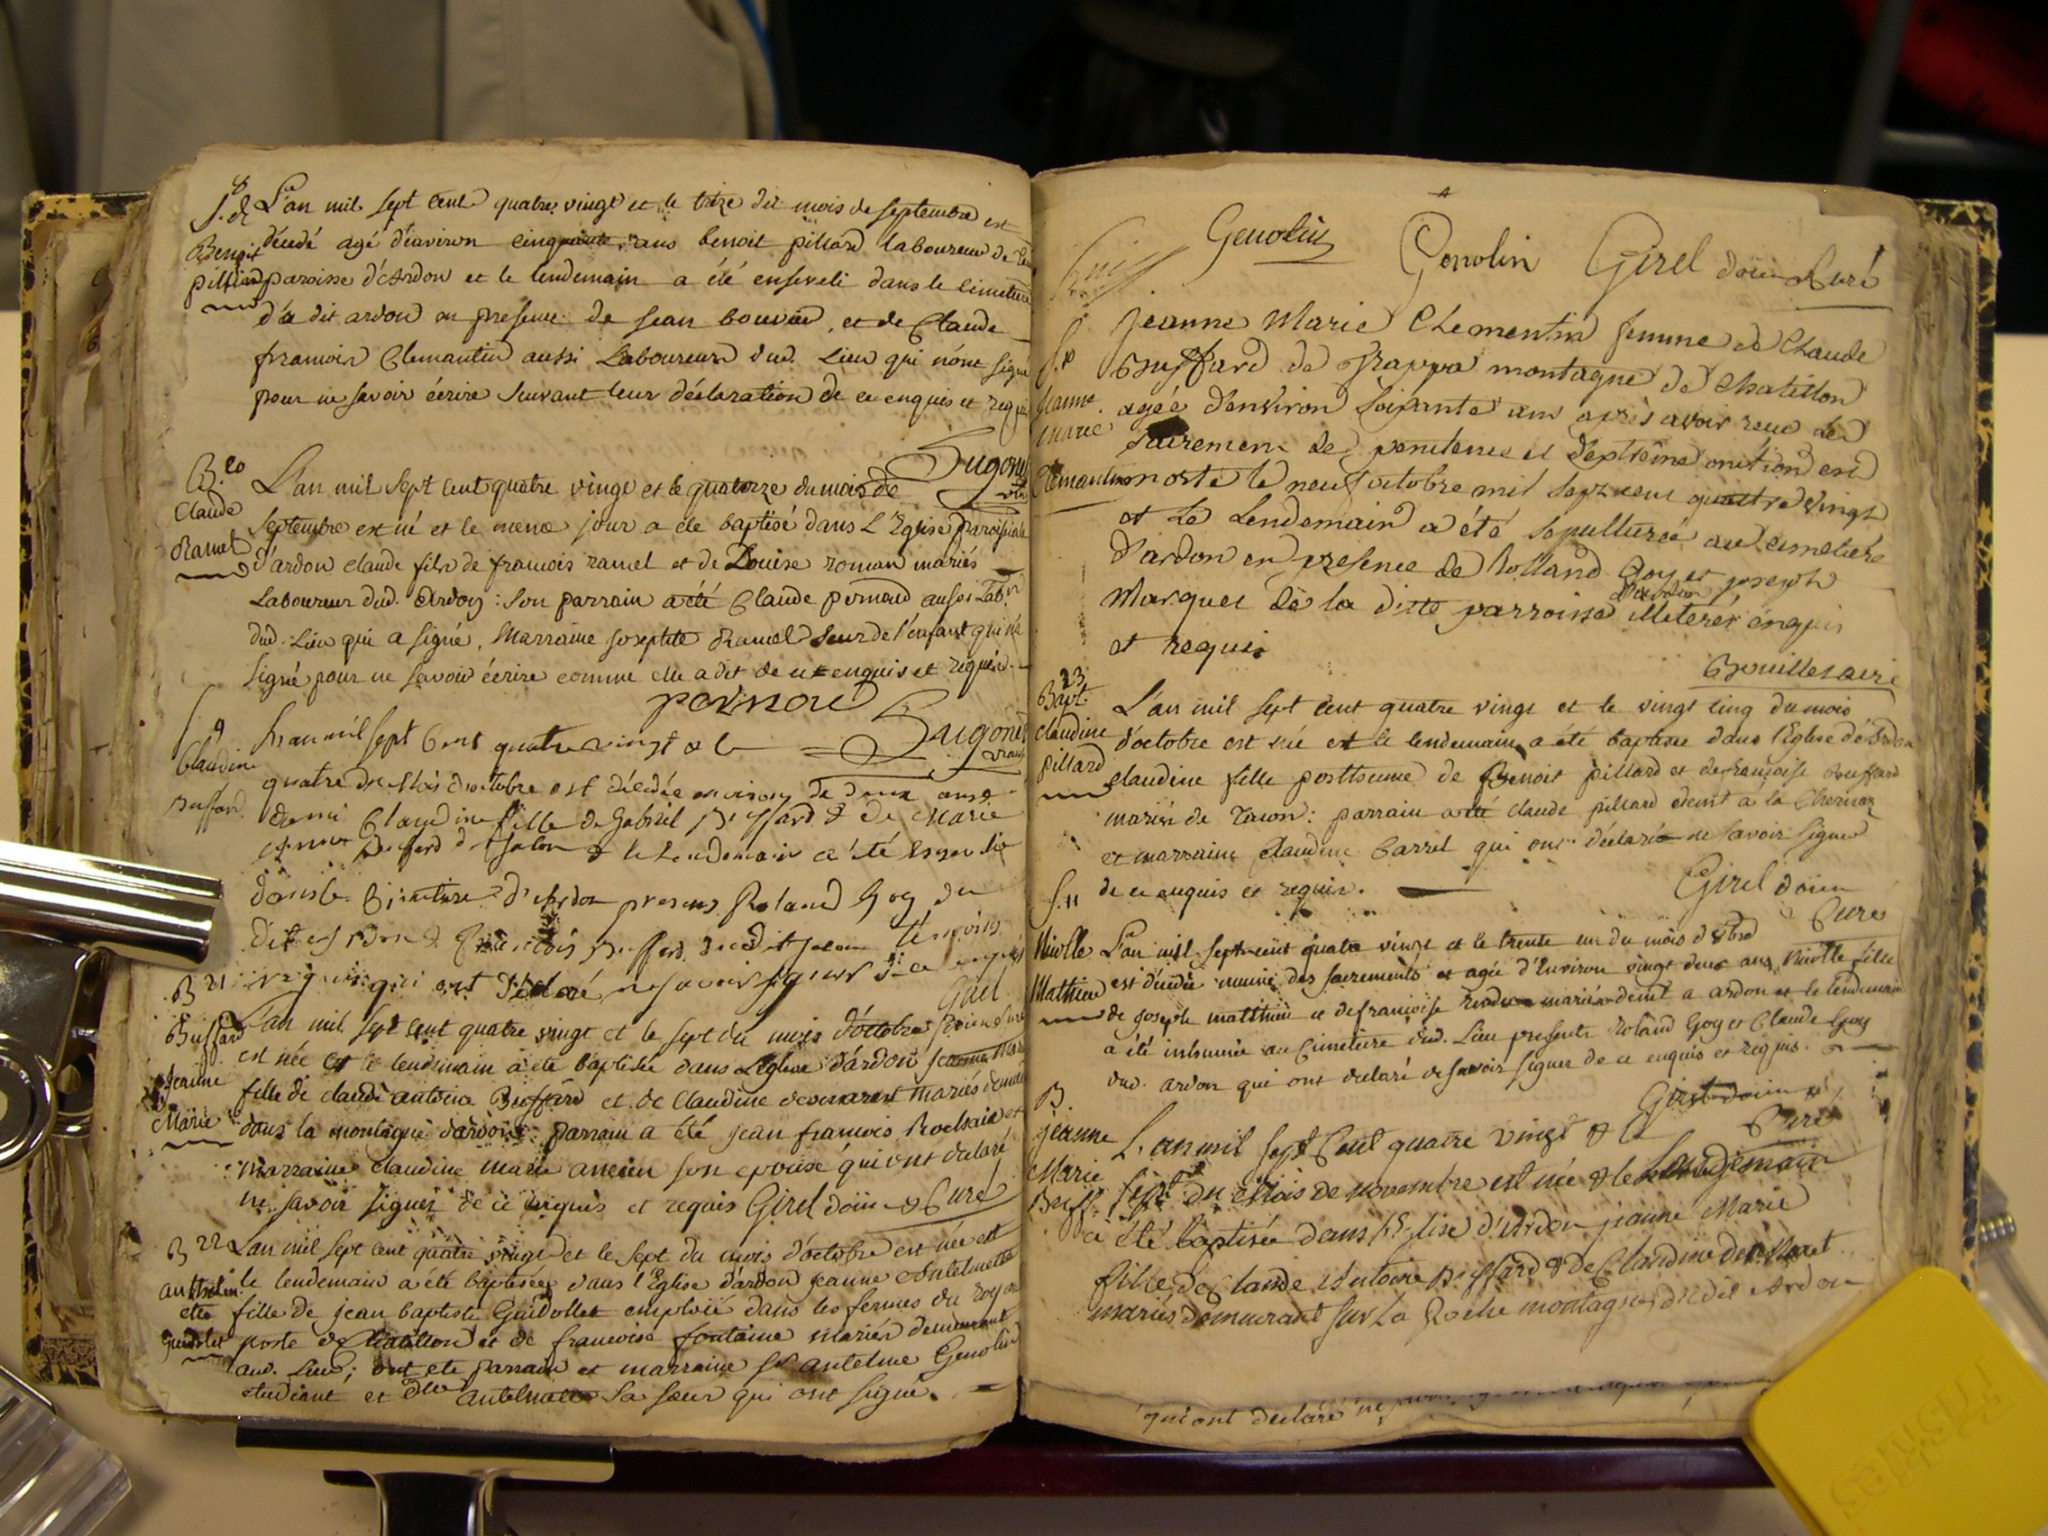 S. 8
Benoit
pillard
L'an mil sept cent quatre vingt et le treze du mois de septembre est
décédé agé d'environ cinquante ans benoit pillard laboureur de
paroisse d'Ardon et le lendemain a été enseveli dans le cimetiere
du dit ardon en presence de jean bouvier, et de Claude
francois Clemantin aussi Laboureur dud. Lieu qui n'ont signé
pour ne savoir écrire suivant leur déclaration de ce enquis et requis
Dugonet
B. 20
Claude
Ramel
L'an mil sept cent quatre vingt et le quatorze du mois de
septembre est né et le meme jour a été baptisé dans L'Eglise paroissiale
d'ardon claude fils de francois ramel et de Louise roman mariés
Laboureur dud. Ardon: son parrain a été Claude pernoud aussi Lab.r
dud. Lieu qui a signé, Marraine josephte Ramel seur de l'enfant qui n'a
signé pour ne savoir écrire comme elle a dit de ce enquis et requise.
pernoud
Dugonet
vicaire
S. 9
Claudine
Buffard
L'an mil sept Cent quatre vingt & le
quatre du Mois d'octobre est décédée environ de deux ans &
demi Claudine fille de Gabriel Buffard & de Marie
Buffard & le Lendemain a été
dans le Cimetiere d'Ardon presens Roland Goy du
dit Ardon & Buffard témoins
requis qui ont déclaré ne savoir signer de ce enquis
Girel
B 21
Buffard
Jeanne
Marie
L'an mil sept cent quatre vingt et le sept du mois d'octobre
est née et le lendemain a été baptisée dans L'eglise d'ardon jeanne Marie
fille de claude antoine Buffard et de Claudine mariés
dans la montagne d'ardon; parrain a été jean francois
marraine claudine marie ancien son epouse qui ont declaré
ne savoir signer de ce enquis et requis Girel doien & Curé
B 22
anthelmette
Guidolet
L'an mil sept cent quatre vingt et le sept du mois d'octobre est née et
le lendemain a été baptisée dans l'Eglise d'ardon jeanne Antelmette
fille de jean baptiste Guidollet emploié dans les fermes du roy au
poste de Chatillon et de francoise fontaine mariés demeurant
aud. Lieu; ont ete parrain et marraine s.r antelme Genolin
etudiant et dlle antelmette sa sœur qui ont signé.
Genolin Genolin Girel doien Curé
S.
jeanne
marie
Clemantin
Jeanne Marie Clementin femme de Claude
Buffard de Frappa montagne de Chatillon
agée d'environ soixante ans après avoir reçu le
sacrement de penitence et d'extreme onction est
morte le neuf octobre mil sept cent quattre vingt
et le Lendemain a été sepulturée au cimetière
d'ardon en presence de Rolland Goy et joseph
Marquet de la ditte parroisse illeterés enquis
et requis
Bouille vicaire
23
Bapt.
claudine
pillard
L'an mil sept cent quatre vingt et le vingt cinq du mois
d'octobre est née et le lendemain a été baptisée dans l'Eglise d'Ardon
claudine fille posthume de Benoit pillard et de francoise Buffard
mariés de Tacon: parrain a été claude pillard demt à la Chernaz
et marraine claudine Carrel qui ont déclaré ne savoir signer
de ce enquis et requis.
Girel doien
Curé
S. 11
Niolle
Mathieu
L'an mil sept cent quatre vingt et le trente un du mois d'8bre
est décédée munie des sacrements et agée d'environ vingt deux ans, Niolle fille
de joseph matthieu et de francoise mariés demt a ardon et le lendemain
a été inhumée au cimetiere dud. Lieu presents roland Goy et Claude Goy
dud. ardon qui ont declaré ne savoir signer de ce enquis et requis.
Girel doien &
Curé
B.
jeanne
Marie
Buff.
L'an mil sept Cent quatre vingt & le
sept du Mois de novembre est née & le Landemain
a été baptisée dans l'Eglise d'Ardon jeanne Marie
fille de Claude Antoine Buffard & de Claudine
mariés demeurant sur La Roche montagne dudit Ardon
qui ont déclaré ne